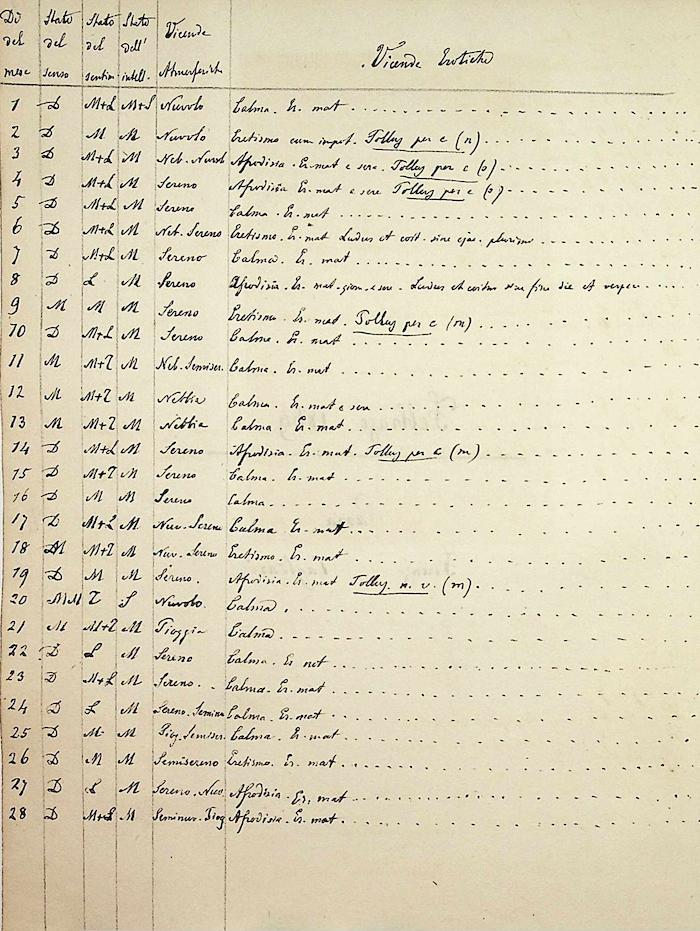 Dì del mese Stato del senso Stato del sentim. Stato dell' intell. Vicende Atmosferiche Vicende Erotiche
1 D M+L M+L Nuvolo Calma. Er. mat
2 D M M Nuvolo Eretismo cum imput. Tolluy per c (n)
3 D M+L M Neb. Nuvol Afrodisia. Er. mat e sera. Tolluy per c (o)
4 D M+L M Sereno Afrodisia Er. mat e sere Tolluy per c (o)
5 D M+L M Sereno Calma. Er. mat
6 D M+L M Neb. Sereno Eretismo. Er. mat Ludus et coit. sine ejac. plurism
7 D M+L M Sereno Calma. Er. mat
8 D L M Sereno Afrodisia. Er. mat. giorn. e sera. Ludus et coitus sine fine die et vespere
9 M M M Sereno Eretismo. Er. mat. Tolluy per c (m)
10 D M+L M Sereno Calma. Er. mat
11 M M+T M Neb. Semiser. Calma. Er. mat
12 M M+T M Nebbia Calma. Er. mat e sera
13 M M+T M Nebbia Calma. Er. mat.
14 D M+L M Sereno Afrodisia. Er. mat. Tolluy per c (m)
15 D M+T M Sereno Calma. Er. mat
16 D M M Sereno Calma
17 D M+L M Nuv. Sereno Calma Er. mat
18 M M+T M Nuv. Sereno Eretismo. Er. mat
19 D M M Sereno. Afrodisia. Er. mat Tolluy. n. v. (m)
20 MM T L Nuvolo. Calma.
21 M M+T M Pioggia Calma
22 D L M Sereno Calma. Er mat
23 D M+L M Sereno. Calma. Er. mat
24 D L M Sereno. Seminu Calma. Er. mat
25 D M M Piog. Semiser. Calma. Er. mat
26 D M M Semisereno Eretismo. Er. mat
27 D L M Sereno. Nuv. Afrodisia. Er. mat
28 D M+L M Seminuv. Piog Afrodisia. Er. mat